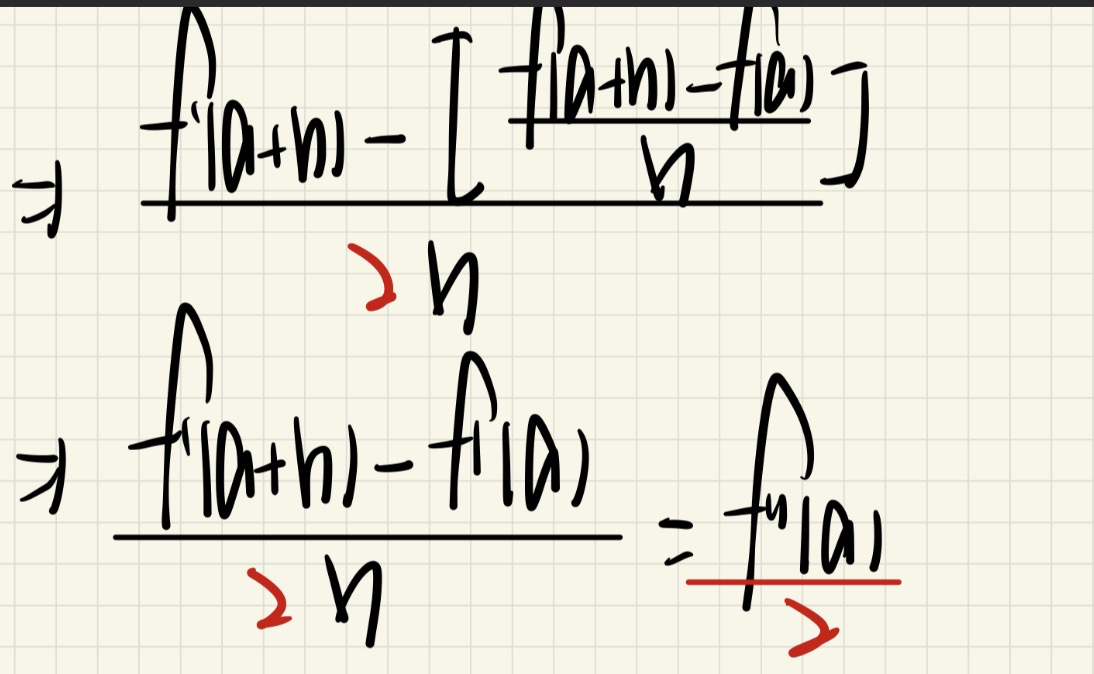 ⇒ (f'(a+h) - [(f(a+h) - f(a))/h])/(2h)
⇒ (f'(a+h) - f'(a))/(2h) = f''(a)/2